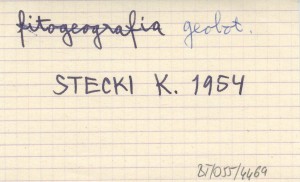 fitogeografia geobot.
STECKI K. 1954
BT/055/4469